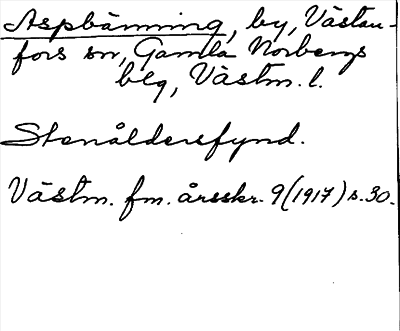 Aspbänning, by, Västan-
fors sn, Gamla Norbergs
blg, Västm. l.
Stenåldersfynd.
Västm. fm. årsskr. 9(1917) s. 30.